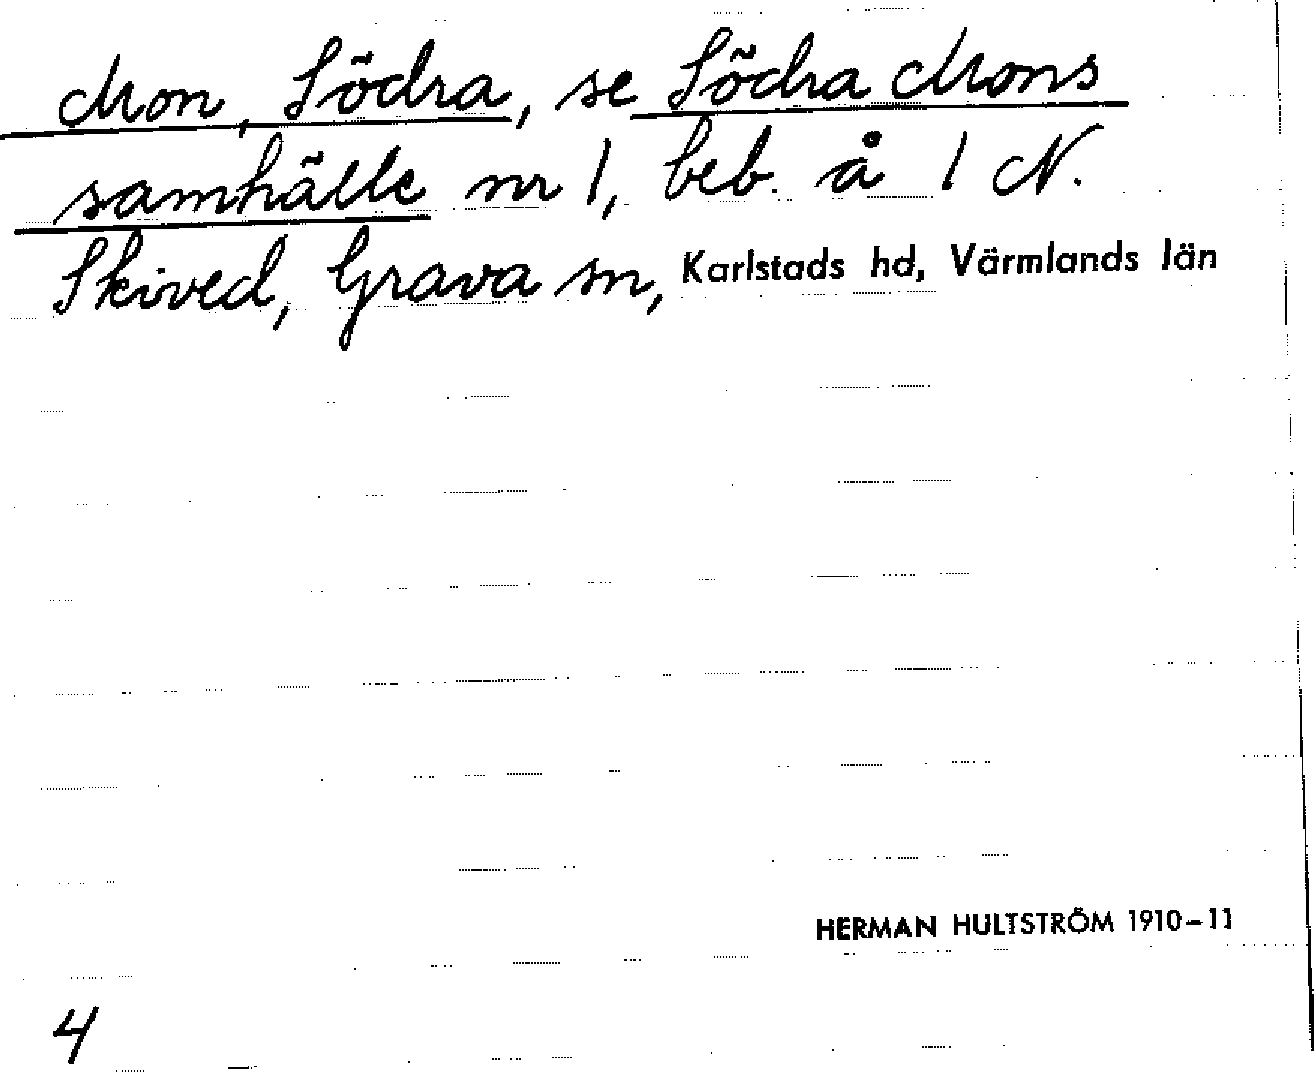 Mon, Södra, se Södra Mons
samhälle nr 1, beb. å 1 N.
Skived, Grava sn, Karlstads hd, Värmlands län
HERMAN HULTSTRÖM 1910-11
4